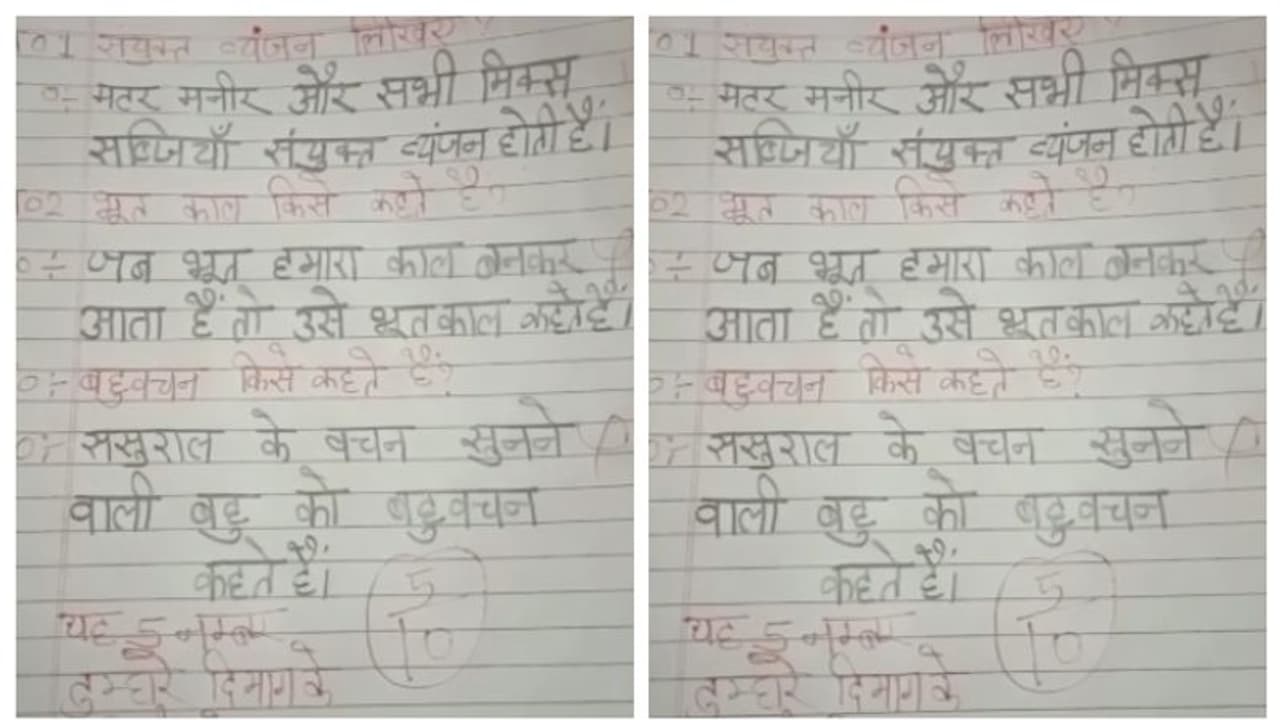 01 सयुक्त व्यंजन लिखिए
0:- मटर मनीर और सभी मिक्स
सब्जियाँ संयुक्त व्यंजन होती है।
02 भूत काल किसे कहते है?
0:- जब भूत हमारा काल बनकर
आता हैं तो उसे भूतकाल कहते हैं।
0:- बहुवचन किसे कहते हैं?
0:- ससुराल के वचन सुनने
वाली बहु को बहुवचन
कहते हैं।
5/10
यह 5 नम्बर
तुम्हारे दिमाग के
01 सयुक्त व्यंजन लिखिए
0:- मटर मनीर और सभी मिक्स
सब्जियाँ संयुक्त व्यंजन होती है।
02 भूत काल किसे कहते है?
:- जब भूत हमारा काल बनकर
आता हैं तो उसे भूतकाल कहते हैं।
0:- बहुवचन किसे कहते हैं?
0:- ससुराल के वचन सुनने
वाली बहु को बहुवचन
कहते हैं।
5/10
यह 5 नम्बर
तुम्हारे दिमाग के